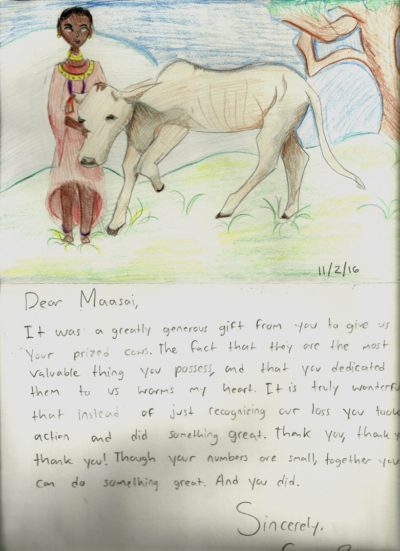 11/2/16
Dear Maasai,
It was a greatly generous gift from you to give us
your prized cows. The fact that they are the most
valuable thing you possess, and that you dedicated
them to us warms my heart. It is truly wonderful
that instead of just recognizing our loss you took
action and did something great. Thank you, thank you
thank you! Though your numbers are small, together you
can do something great. And you did.
Sincerely,